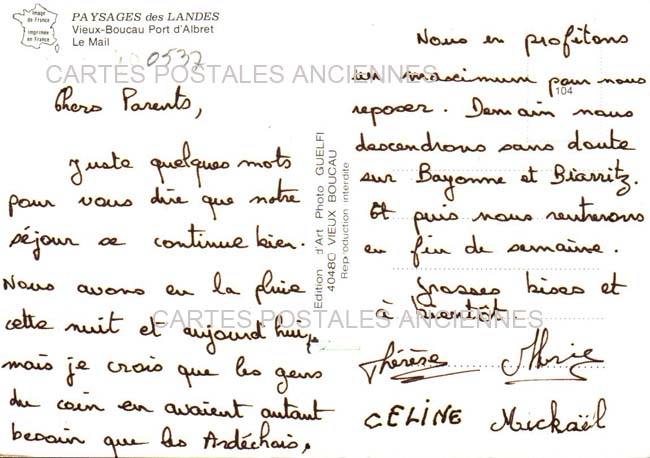 Image
de France
Imprimée
en France
PAYSAGES des LANDES
Vieux-Boucau Port d'Albret
Le Mail
0537
CARTES POSTALES ANCIENNES
Chers Parents,
Juste quelques mots
pour vous dire que notre
séjour se continue bien.
Nous avons eu la pluie
cette nuit et aujourd'hui,
mais je crois que les gens
du coin en avaient autant
besoin que les Ardéchois,
Edition d'Art Photo GUELFI
40480 VIEUX BOUCAU
Reproduction interdite
104
Nous en profitons
un maximum pour nous
reposer. Demain nous
descendrons sans doute
sur Bayonne et Biarritz.
Et puis nous rentrerons
en fin de semaine.
Grosses bises et
à bientôt
CARTES POSTALES ANCIENNES
Thérèse
CELINE Mickaël